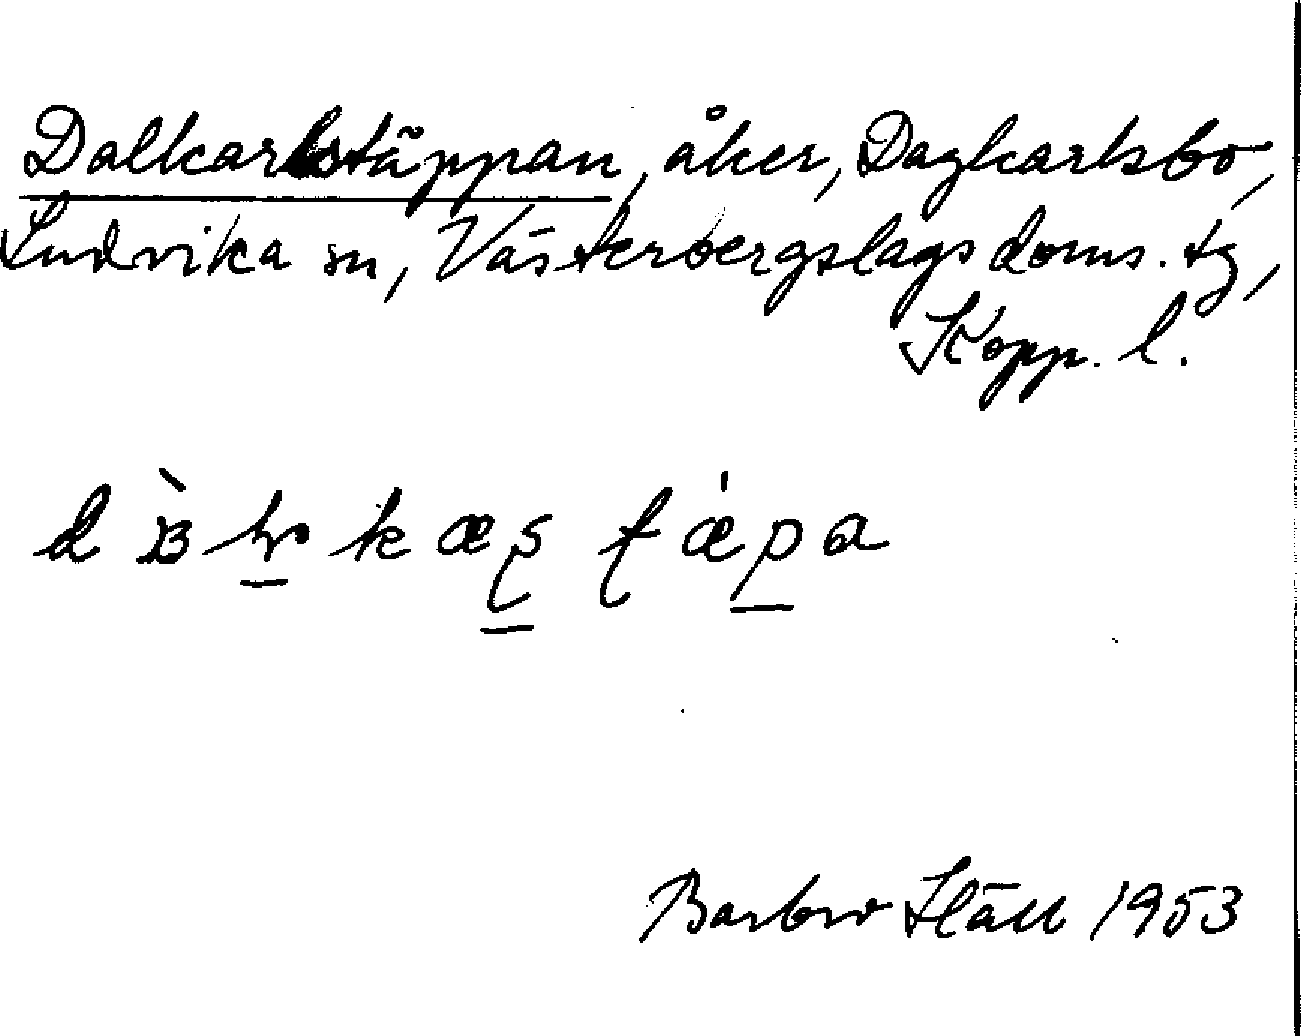 Dalkarlstäppan, åker, Dagkarlsbo,
Ludvika sn, Västerbergslags doms. tg,
Kopp. l.
Barbro Släll 1953